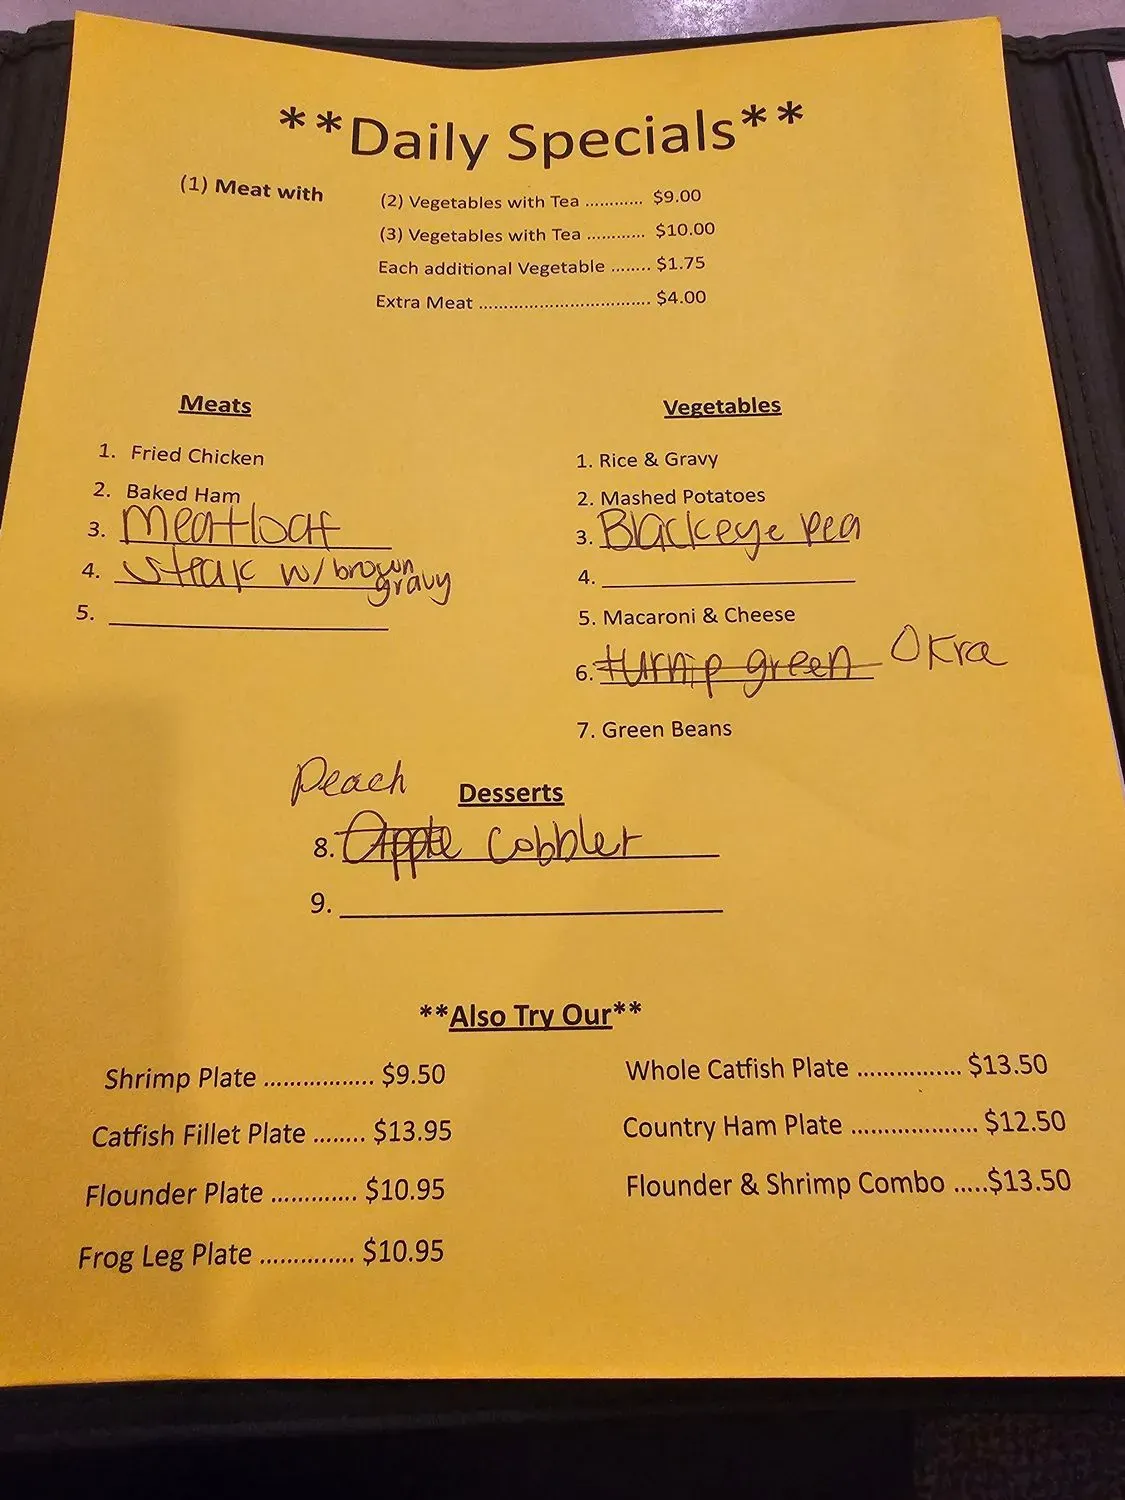 **Daily Specials**
(1) Meat with
(2) Vegetables with Tea ............ $9.00
(3) Vegetables with Tea ............ $10.00
Each additional Vegetable ........ $1.75
Extra Meat .................................. $4.00
Meats
1. Fried Chicken
2. Baked Ham
3. Meatloaf
4. Steak w/ brown gravy
5.
Vegetables
1. Rice & Gravy
2. Mashed Potatoes
3. Blackeye pea
4.
5. Macaroni & Cheese
6. turnip green Okra
7. Green Beans
Desserts
Peach
8. Apple cobbler
9.
**Also Try Our**
Shrimp Plate ................. $9.50
Catfish Fillet Plate ........ $13.95
Flounder Plate ............. $10.95
Frog Leg Plate .............. $10.95
Whole Catfish Plate ................ $13.50
Country Ham Plate ................... $12.50
Flounder & Shrimp Combo .....$13.50